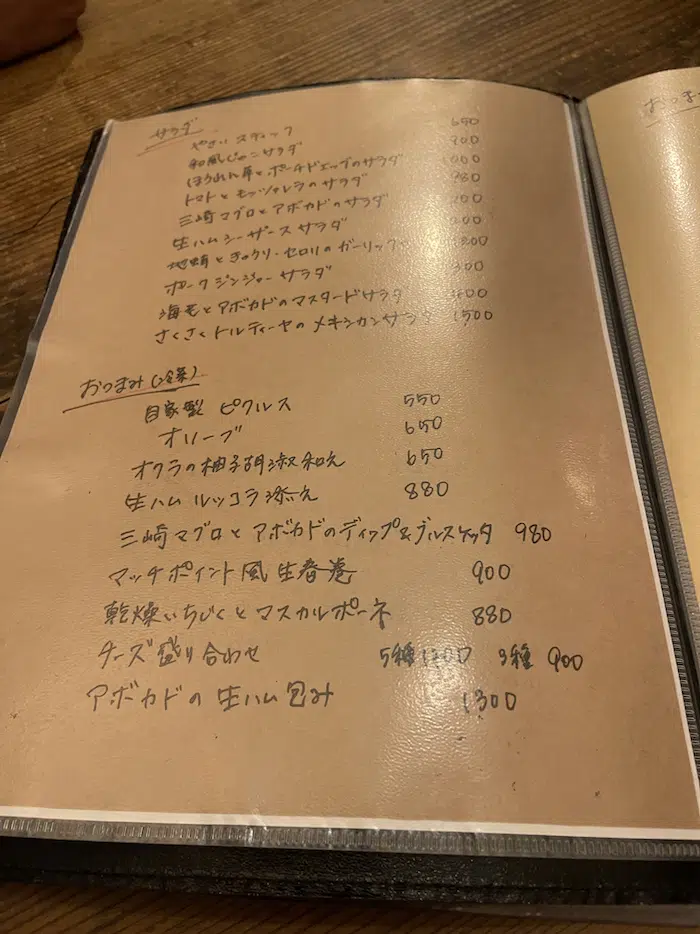 サラダ
やさいスティック 650
和風じゃこサラダ 900
ほうれん草とポーチドエッグのサラダ
トマトとモッツァレラのサラダ 980
三崎マグロとアボカドのサラダ
生ハムシーザースサラダ
地蛸ときゅうり・セロリのガーリック
ポークジンジャーサラダ
海老とアボカドのマスタードサラダ
さくさくトルティーヤのメキシカンサラダ 1500
おつまみ(冷菜)
自家製 ピクルス 550
オリーブ 650
オクラの柚子胡淑和え 650
生ハム ルッコラ添え 880
三崎マグロとアボカドのディップ&ブルスケッタ 980
マッチポイント風生春巻 900
乾燥いちじくとマスカルポーネ 880
チーズ盛り合わせ 5種 3種 900
アボカドの生ハム包み 1300
おつま